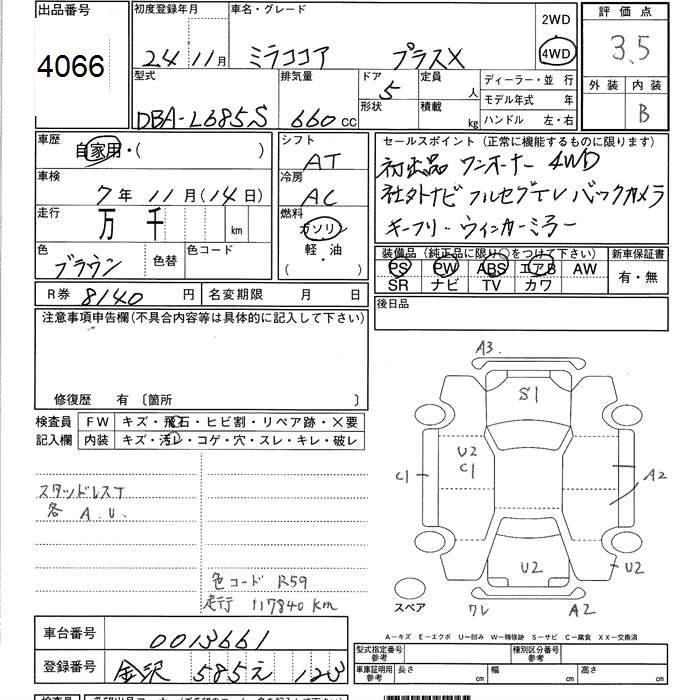 出品番号 初度登録年月 車名・グレード 2WD 評価点
4066 24 11月 ミラココア プラスX 4WD 3.5
型式 排気量 ドア 定員 ディーラー・並行 外装 内装
DBA-L685S 660cc 5 人 モデル年式 年 B
形状 積載 kg ハンドル 左・右
車歴 自家用・( ) シフト AT セールスポイント (正常に機能するものに限ります)
初出品 ワンオーナー 4WD
車検 7年 11月(14日) 冷房 AC 社外ナビ フルセグTV バックカメラ
走行 万 千 km 燃料 ガソリン キーフリー ウィンカーミラー
軽・油
( )
色 ブラウン 色替 色コード
装備品 (純正品に限り○をつけて下さい) 新車保証書
PS PW ABS エアB AW 有・無
SR ナビ TV カワ
R券 8140 円 名変期限 月 日 後日品
注意事項申告欄(不具合内容等は具体的に記入して下さい)
修復歴 有 〔箇所 〕
検査員 FW キズ・飛石・ヒビ割・リペア跡・X要
記入欄 内装 キズ・汚レ・コゲ・穴・スレ・キレ・破レ
A3
S1
U2
C1
C1
A2
U2
U2
ワレ A2
スペア
スタッドレスT
各 A.U.
色コード R59
走行 117840km
車台番号 0013661
A−キズ E−エクボ U−凹み W−補修跡 S−サビ C−腐食 XX−交換済
型式指定番号 参考 種別区分番号 参考
登録番号 金沢 585え 123 車庫証明用 参考 長さ 幅 高さ